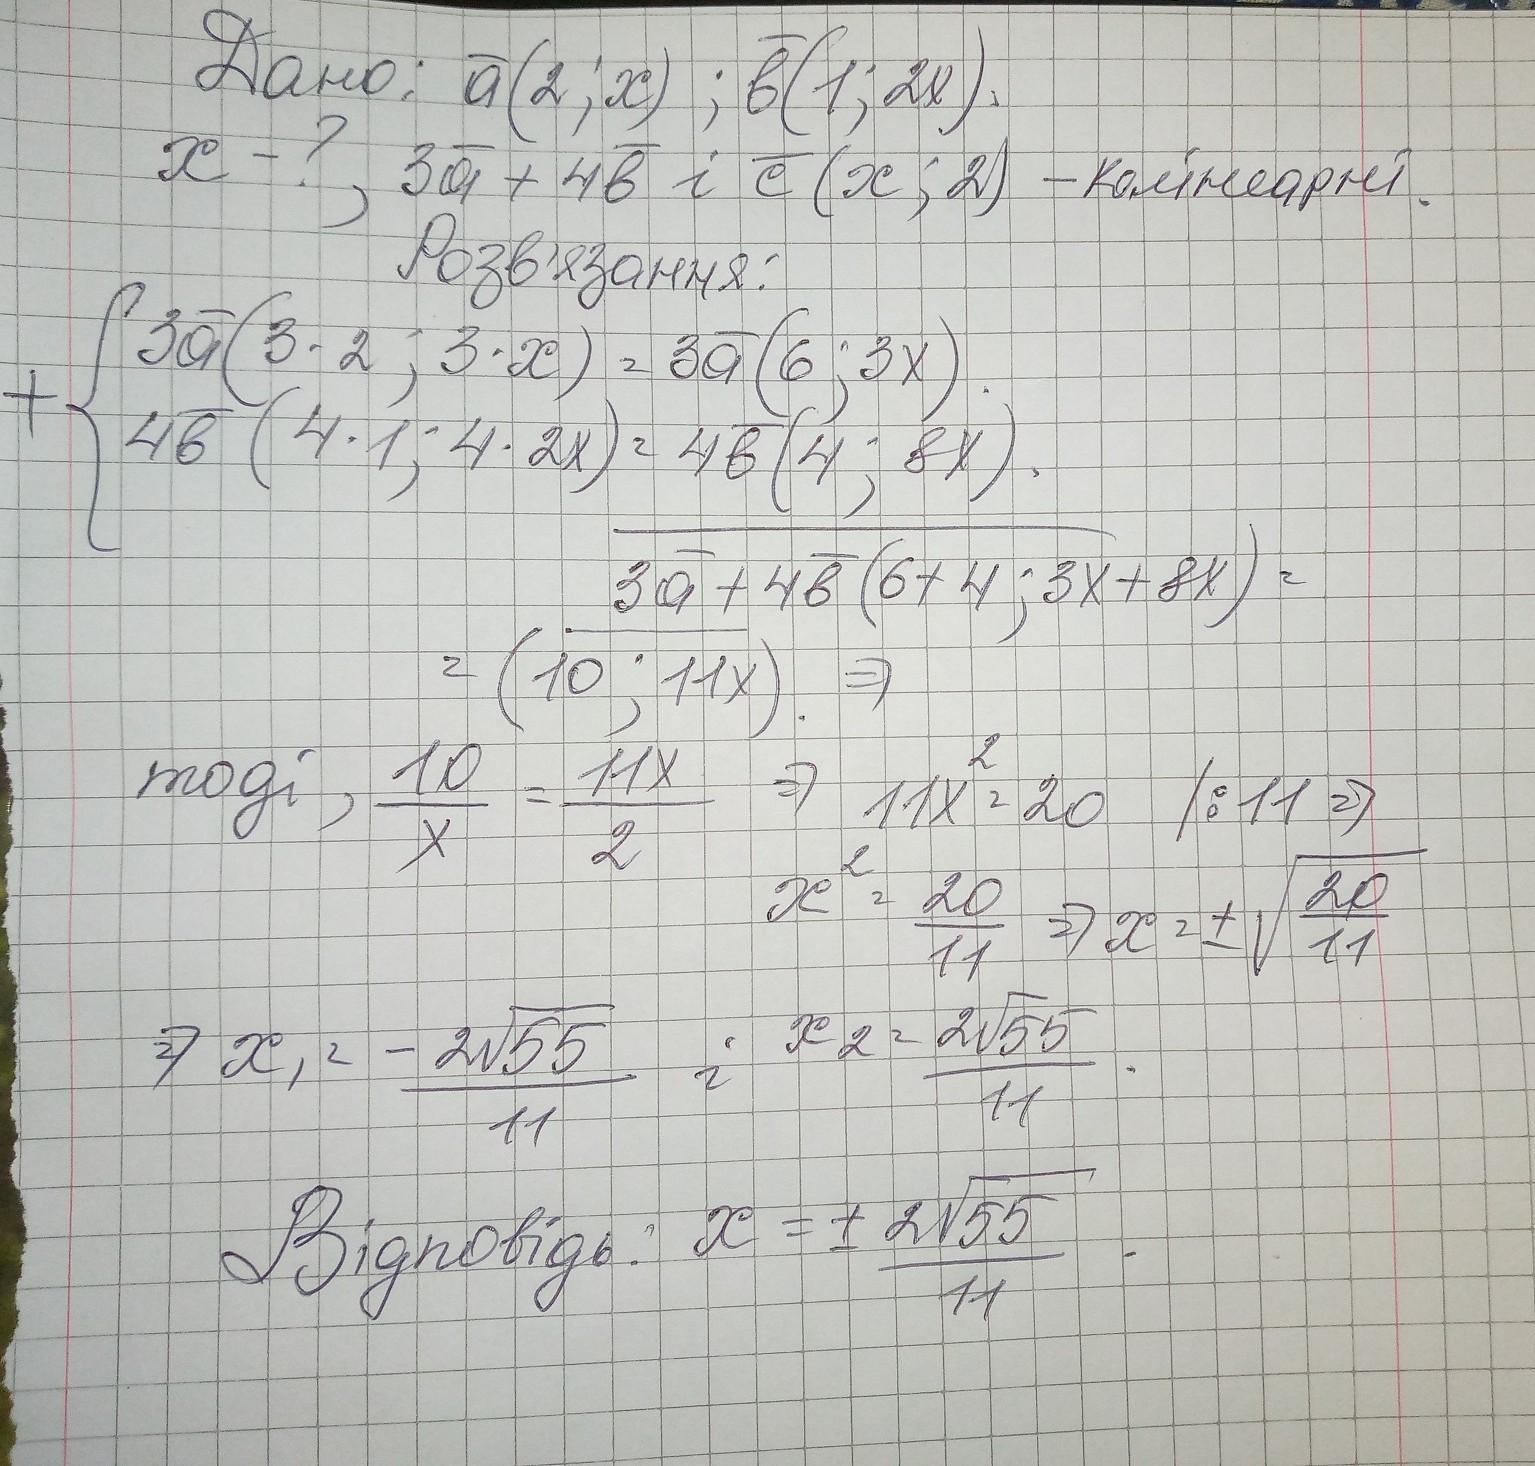 Дано: a̅(2; x); b̅(1; 2x).
x - ?, 3a̅ + 4b̅ і c̅(x; 2) - колінеарні.
Розв'язання:
+ { 3a̅(3·2; 3·x) = 3a̅(6; 3x).
4b̅(4·1; 4·2x) = 4b̅(4; 8x).
3a̅ + 4b̅(6+4; 3x+8x) =
= (10; 11x). ⇒
тоді, 10/x = 11x/2 ⇒ 11x² = 20 /:11 ⇒
x² = 20/11 ⇒ x = ±√(20/11)
⇒ x₁ = -2√55/11 і x₂ = 2√55/11.
Відповідь: x = ± 2√55/11.